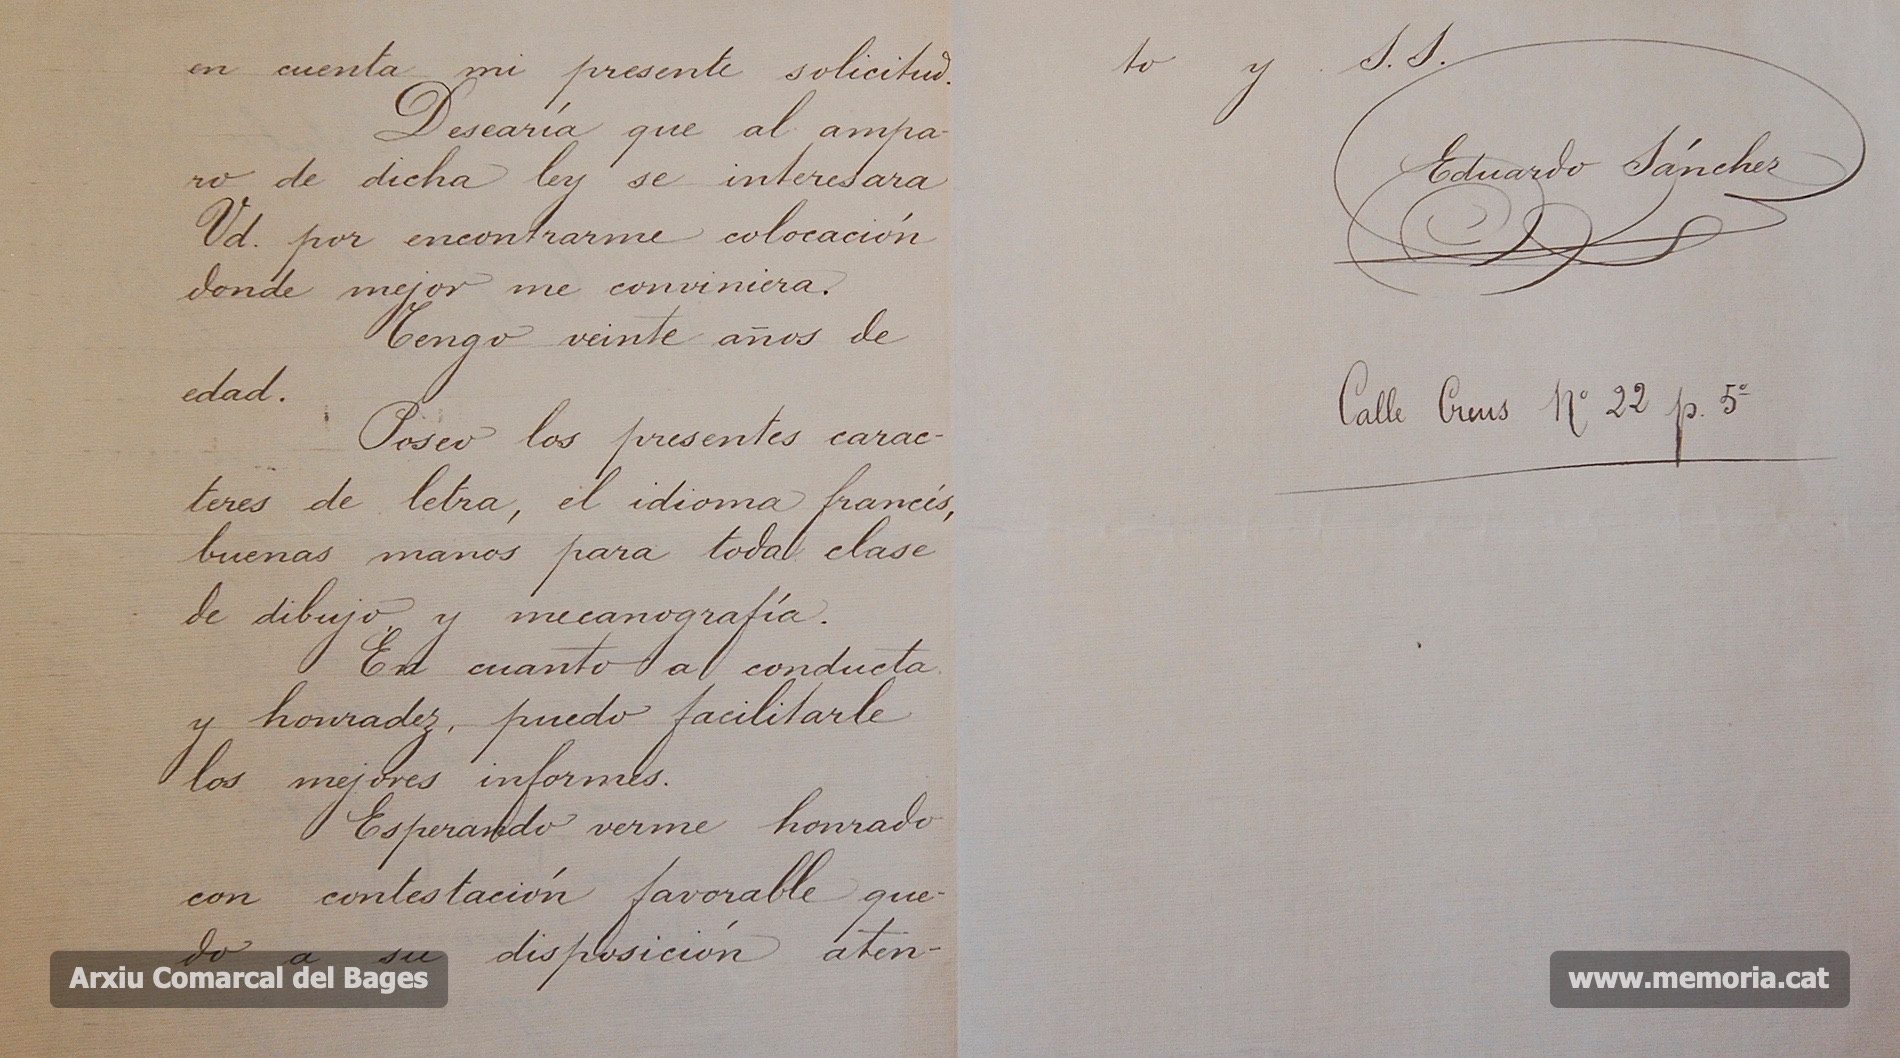 en cuenta mi presente solicitud.
Desearía que al ampa-
ro de dicha ley se interesara
Vd. por encontrarme colocación
donde mejor me conviniera.
Tengo veinte años de
edad.
Poseo los presentes carac-
teres de letra, el idioma francés,
buenas manos para toda clase
de dibujo, y mecanografía.
En cuanto a conducta
y honradez, puedo facilitarle
los mejores informes.
Esperando verme honrado
con contestación favorable que-
do a su disposición aten-
to y S.S.
Eduardo Sánchez
Calle Creus Nº 22 p. 5º
Arxiu Comarcal del Bages
www.memoria.cat